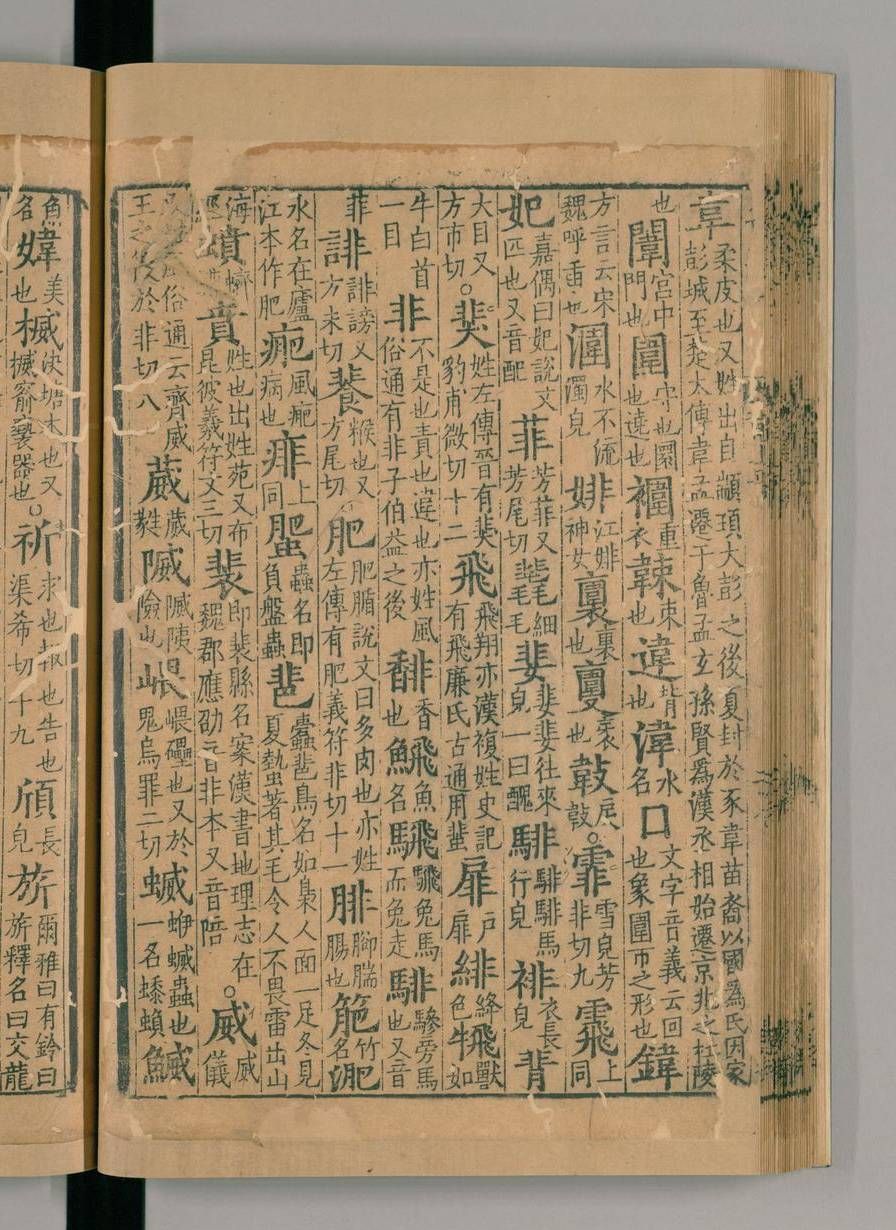 韋柔皮也又姓出自顓頊大彭之後夏封於豕韋苗裔以國為氏因家彭城至楚太傅韋孟遷于魯孟玄孫賢為漢丞相始遷京兆之杜陵
也闈宮中門也圍守也圜也遶也褘重衣䪏束也違背也湋水名囗文字音義云回也象圍帀之形也鍏
方言云宋魏呼臿也潿水不流濁皃婔江婔神女裹也裹也敼戾也霏雪皃芳非切九上同
妃嘉偶曰妃說文匹也又音配菲芳菲又芳尾切細毛婓婓婓往來皃一曰醜騑騑騑馬行皃裶衣長皃
大目又方巿切。婓姓左傳晉有婓豹甫微切十二飛飛翔亦漢複姓史記有飛廉氏古通用蜚扉戶扉緋絳色獸如
牛白首一目非不是也責也違也亦姓風俗通有非子伯益之後馡香也飛魚名騛騛兔馬而兔走騑驂旁馬也又音
菲誹誹謗又方未切餥餱也又方尾切肥肥腯說文曰多肉也亦姓左傳有肥義符非切十一腓腳腨腸也竹名淝
水名在廬江本作肥風病也痱上同蜰蟲名即負盤蟲鳥名如梟人面一足冬見夏蟄著其毛令人不畏雷出山
海經蟦賁姓也出姓苑又布昆彼義符文三切裴即裴縣名案漢書地理志在魏郡應劭音非本又音陪。威威儀
俗通云齊威王之後於非切八葳葳蕤隇隇陝險也嵔也又於鬼烏罪二切蝛蛜蝛蟲也一名鰄
魚名媁美也楲決塘木也又楲窬褻器也。祈求也報也告也渠希切十九頎長皃旂爾雅曰有鈴曰旂釋名曰交龍